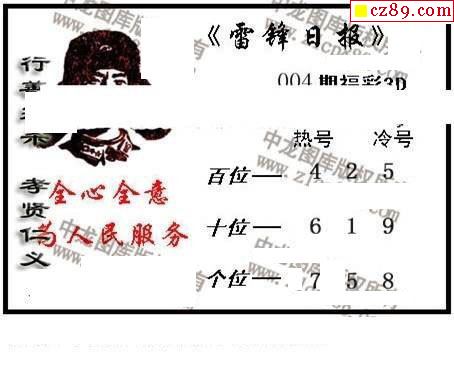 cz89.com
《雷锋日报》
004期福彩3D
热号 冷号
百位— 4 2 5
十位— 6 1 9
个位— 7 5 8
全心全意
为人民服务
孝贤仁义
中龙图库版权所有